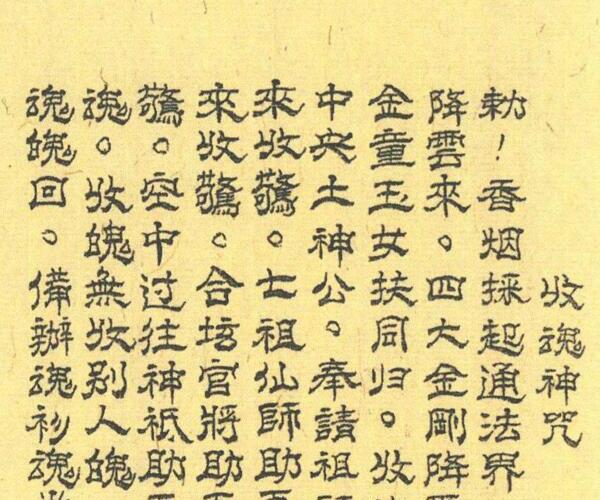 收魂神咒
勅！香烟採起通法界
降雲來。四大金剛降
金童玉女扶同归。收
中央土神公。奉請祖
來收驚。七祖仙師助
來收驚。合坛官將助
驚。空中过往神祇助
魂。收魄無收別人魄
魂魄回。備辦魂衫魂